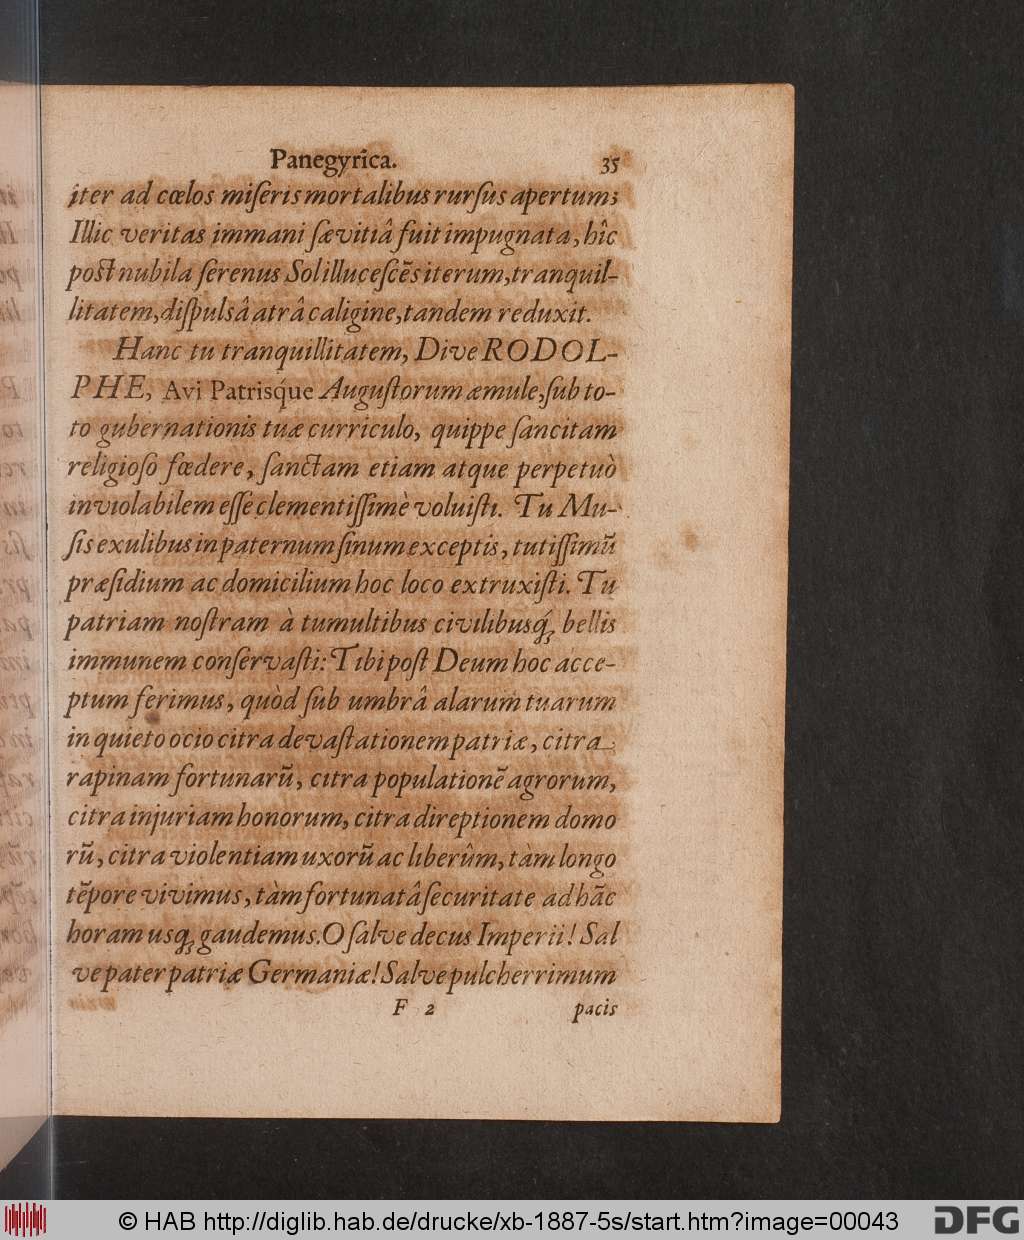 Panegyrica. 35
iter ad cœlos miſeris mortalibus rurſus apertum;
Illic veritas immani ſævitiâ fuit impugnata, hîc
poſt nubila ſerenus Sol illuceſcẽs iterum, tranquil-
litatem, diſpulsâ atrâ caligine, tandem reduxit.
Hanc tu tranquillitatem, Dive RODOL-
PHE, Avi Patrisq́ue Auguſtorum æmule, ſub to-
to gubernationis tuæ curriculo, quippe ſancitam
religioſo fœdere, ſanctam etiam atque perpetuò
inviolabilem eſſe clementiſſimè voluiſti. Tu Mu-
ſis exulibus in paternum ſinum exceptis, tutiſſimũ
præſidium ac domicilium hoc loco extruxiſti. Tu
patriam noſtram à tumultibus civilibusq́; bellis
immunem conſervaſti: Tibi poſt Deum hoc acce-
ptum ferimus, quòd ſub umbrâ alarum tuarum
in quieto ocio citra devaſtationem patriæ, citra
rapinam fortunarũ, citra populationẽ agrorum,
citra injuriam honorum, citra direptionem domo
rũ, citra violentiam uxorũ ac liberûm, tàm longo
tẽpore vivimus, tàm fortunatâ ſecuritate ad hãc
horam usq; gaudemus. O ſalve decus Imperii! Sal
ve pater patriæ Germaniæ! Salve pulcherrimum
F 2 pacis
© HAB http://diglib.hab.de/drucke/xb-1887-5s/start.htm?image=00043 DFG